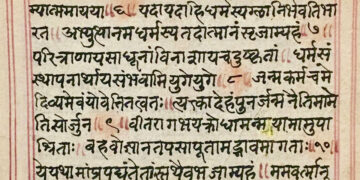 म्यात्ममायया ॥ ६ यदायदाहिधर्मस्यग्लानिर्भवतिभा
रत अभ्युत्थानमधर्मस्यतदात्मानंसृजाम्यहं ॥ ७
परित्राणायसाधूनांविनाशायचदुष्कृतां धर्मसं
स्थापनार्थायसंभवामियुगेयुगे ॥ ८ जन्मकर्मचमे
दिव्यमेवंयोवेत्तितत्वतः त्यक्त्वादेहंपुनर्जन्मनैतिमामे
तिसोर्जुन ॥ ९ वीतरागभयक्रोधामन्मयामामुपा
श्रिताः बहवोज्ञानतपसापूतामद्भावमागताः ॥ १०
येयथामांप्रपद्यंतेतांस्तथैवभजाम्यहं ममवर्त्मानु